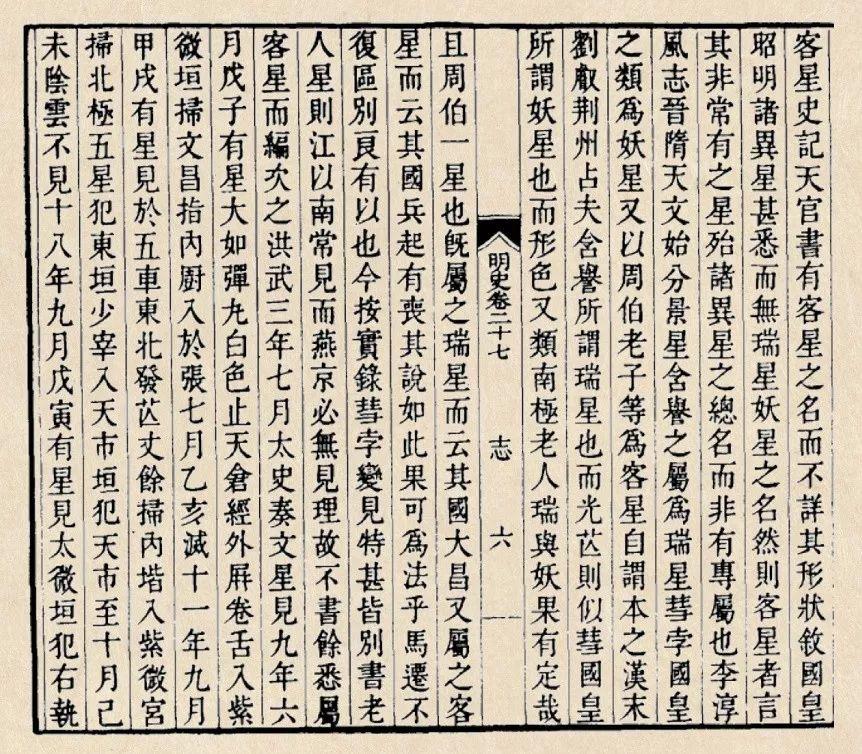 客星史記天官書有客星之名而不詳其形狀敘國皇
昭明諸異星甚悉而無瑞星妖星之名然則客星者言
其非常有之星殆諸異星之總名而非有專屬也李淳
風志晉隋天文始分景星含譽之屬爲瑞星彗孛國皇
之類爲妖星又以周伯老子等爲客星自謂本之漢末
劉叡荆州占夫含譽所謂瑞星也而光芒則似彗國皇
所謂妖星也而形色又類南極老人瑞與妖果有定哉
明史卷二十七 志六 一
且周伯一星也旣屬之瑞星而云其國大昌又屬之客
星而云其國兵起有喪其說如此果可爲法乎馬遷不
復區別良有以也今按實錄彗孛變見特甚皆別書老
人星則江以南常見而燕京必無見理故不書餘悉屬
客星而編次之洪武三年七月太史奏文星見九年六
月戊子有星大如彈丸白色止天倉經外屛卷舌入紫
微垣掃文昌指內厨入於張七月乙亥滅十一年九月
甲戌有星見於五車東北發芒丈餘掃內堦入紫微宮
掃北極五星犯東垣少宰入天市垣犯天市至十月己
未陰雲不見十八年九月戊寅有星見太微垣犯右執